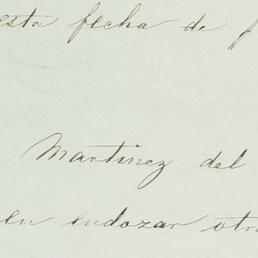 esta fecha de f
Martinez del
en endozar otra